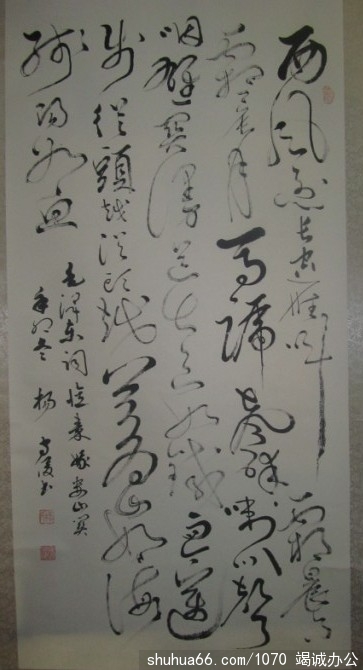 西风烈长空雁叫霜晨月
霜晨月马蹄声碎喇叭声
咽雄关漫道真如铁而今迈
步從頭越從头越苍山如海
残阳如血
毛泽东词憶秦娥娄山关
冬 杨 书
shuhua66.com/1070 竭诚办公